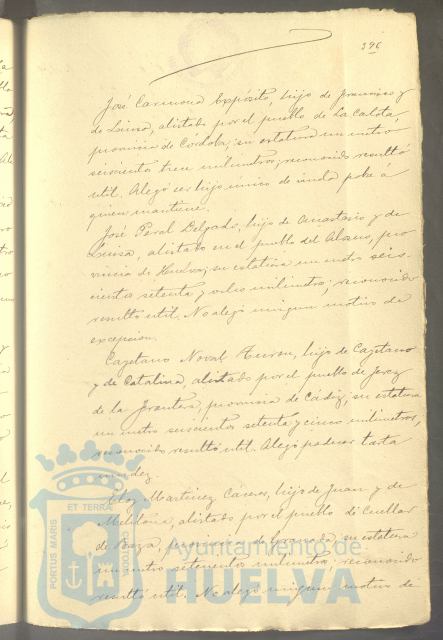 396
José Carmona Expósito, hijo de Francisco y
de Luisa, alistado por el pueblo de La Calota,
provincia de Cordoba; su estatura un metro
seiscientos trece milimetros; reconocido resultó
util. Alegó ser hijo único de viuda pobre a
quien mantiene.
José Peral Delgado, hijo de Anastasio y de
Luisa, alistado en el pueblo del Alosno, pro
vincia de Huelva; su estatura un metro seis-
cientos setenta y ocho milimetros; reconocido
resultó util. No alegó ningun motivo de
excepcion.
Cayetano Noval hijo de Cayetano
y de Catalina, alistado por el pueblo de Jerez
de la Frontera, provincia de Cádiz, su estatura
un metro seiscientos setenta y cinco milimetros,
reconocido resultó util. Alegó padecer tarta
mudez.
Eloy Martinez hijo de Juan y de
Melitona, alistado por el pueblo de Cuellar
de Baza, provincia de Granada, su estatura
un metro setecientos milimetros; reconocido
resultó util. No alegó ningun motivo de
PORTUS MARIS ET TERRAE CUSTODIA
Ayuntamiento de
HUELVA